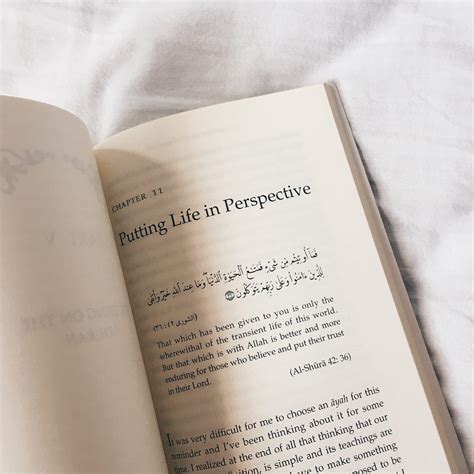 CHAPTER 11
Putting Life in Perspective
فَمَا أُوتِيتُم مِّن شَىْءٍ فَمَتَـٰعُ ٱلْحَيَوٰةِ ٱلدُّنْيَا ۖ وَمَا عِندَ ٱللَّهِ خَيْرٌ وَأَبْقَىٰ
لِلَّذِينَ ءَامَنُوا۟ وَعَلَىٰ رَبِّهِمْ يَتَوَكَّلُونَ
That which has been given to you is only the
wherewithal of the transient life of this world.
But that which is with Allah is better and more
enduring for those who believe and put their trust
in their Lord.
(Al-Shūrā 42: 36)
It was very difficult for me to choose an āyah for this
reminder and I've been thinking about it for some
time. I realized at the end of all that thinking that our
is simple and its teachings are